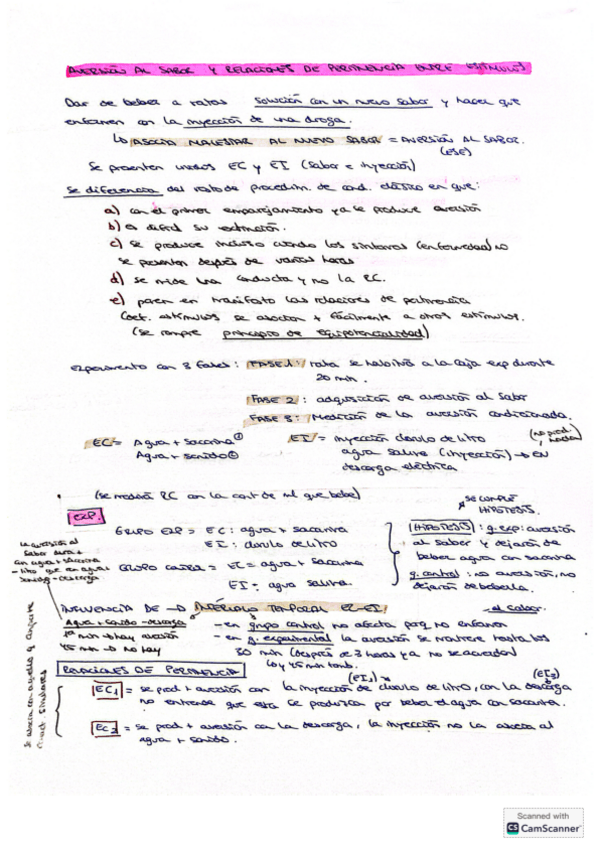 AVERSIÓN AL SABOR Y RELACIONES DE PERTINENCIA ENTRE ESTÍMULOS
Dar de beber a ratas solución con un nuevo sabor y hacer que
enfermen con la inyección de una droga.
↳ ASOCIA MALESTAR AL NUEVO SABOR = AVERSIÓN AL SABOR.
(ESE)
Se presentan unidos EC y EI (sabor e inyección)
Se diferencia del resto de procedim. de cond. clásico en que:
a) con el primer emparejamiento ya se produce aversión
b) es difícil su extinción.
c) se produce incluso cuando los síntomas (enfermedad) no
se presentan después de varias horas
d) se mide una conducta y no la RC.
e) ponen en manifiesto las relaciones de pertinencia
(det. estímulos se asocian + fácilmente a otros estímulos.
(se rompe principio de equipotencialidad)
experimento con 3 fases: FASE 1: rata se habitúa a la caja exp durante
20 min.
FASE 2: adquisición de aversión al sabor
FASE 3: Medición de la aversión condicionada.
EC = Agua + sacarina ①
Agua + sonido ②
EI = inyección cloruro de litio
agua salina (inyección) → EN
descarga eléctrica
(no prod.
y nada)
(se medirá RC con la cant de ml que bebe)
EXP.
GRUPO EXP = EC: agua + sacarina
EI: cloruro de litio
GRUPO CONTROL = EC = agua + sacarina
EI = agua salina.
se cumple
HIPÓTESIS.
HIPÓTESIS: g. exp: aversión
al sabor y dejarán de
beber agua con sacarina
g. control: no aversión, no
dejarán de beberla.
la aversión al
sabor dura +
con agua + sacarina
- litio que en agua +
sonido - descarga
INFLUENCIA DE → INTERVALO TEMPORAL EC-EI:
al sabor.
Agua + sonido - descarga
10 min → hay aversión
45 min → no hay
- en grupo control no afecta porq no enferman
- en g. experimental la aversión se mantiene hasta los
30 min (después de 3 horas ya no se acuerdan)
↳ y 45 min tamb.
RELACIONES DE PERTINENCIA
(EI₁)
(EI₂)
EC1 = se prod + aversión con la inyección de cloruro de litio, con la descarga
no entiende que esta se produzca por beber el agua con sacarina.
EC2 = se prod + aversión con la descarga, la inyección no la asocia al
agua + sonido.
se asocia con aquello q comparte
caract. similares